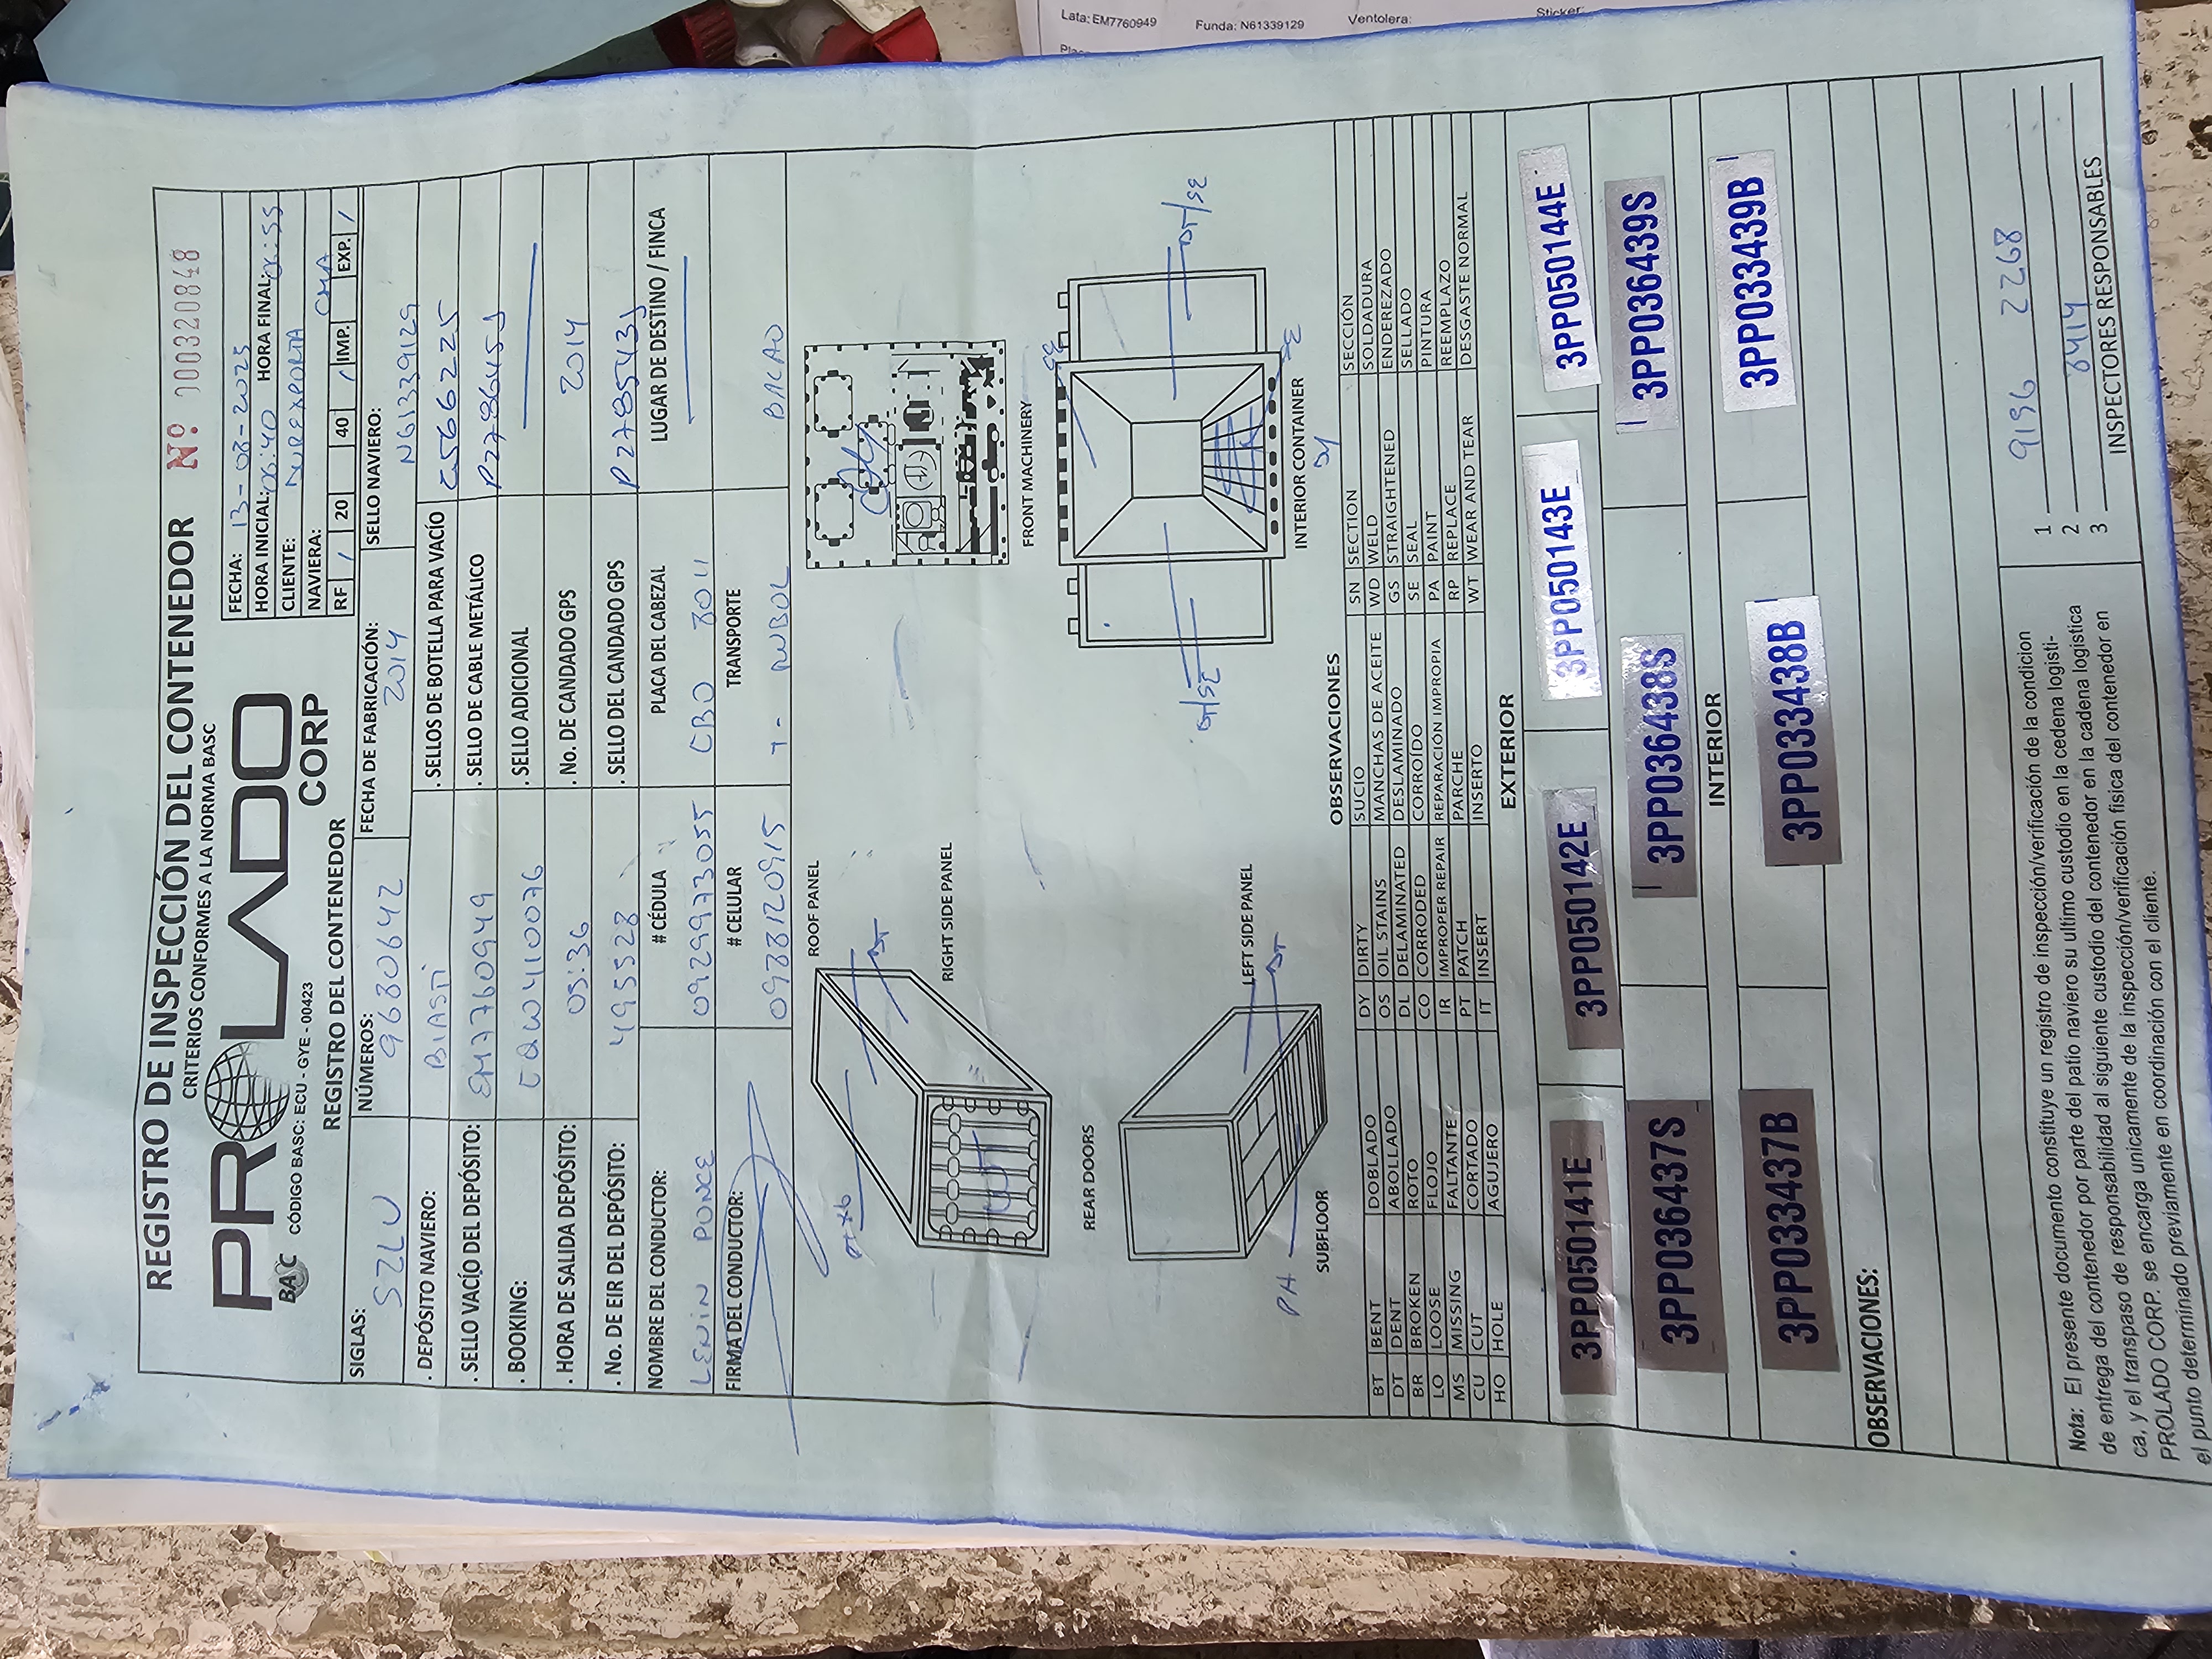 REGISTRO DE INSPECCIÓN DEL CONTENEDOR Nº 000320848
CRITERIOS CONFORMES A LA NORMA BASC
PROLADO
CORP
BASC CÓDIGO BASC: ECU - GYE - 00423
FECHA: 13-08-2025
HORA INICIAL: 06:40 HORA FINAL: 06:55
CLIENTE: DUREXPORTA
NAVIERA: CMA
RF / 20 40 / IMP. EXP. /
REGISTRO DEL CONTENEDOR
SIGLAS: SZLU NÚMEROS: 9680642 FECHA DE FABRICACIÓN: 2014 SELLO NAVIERO: N61339129
. DEPÓSITO NAVIERO: BLASTI . SELLOS DE BOTELLA PARA VACÍO C566225
. SELLO VACÍO DEL DEPÓSITO: EM7760949 . SELLO DE CABLE METÁLICO P278645J
. BOOKING: EQW410076 . SELLO ADICIONAL
. HORA DE SALIDA DEPÓSITO: 05:36 . No. DE CANDADO GPS 2014
. No. DE EIR DEL DEPÓSITO: 495528 . SELLO DEL CANDADO GPS P278543J
NOMBRE DEL CONDUCTOR: # CÉDULA PLACA DEL CABEZAL LUGAR DE DESTINO / FINCA
LENIN PONCE 0929973055 CBO 8011
FIRMA DEL CONDUCTOR: # CELULAR TRANSPORTE
0988120915 T- NUBOL BALAO
ROOF PANEL
DT
RIGHT SIDE PANEL
WT
FRONT MACHINERY
SE
REAR DOORS
DT/SE DT/SE
LEFT SIDE PANEL
DT
PA
SUBFLOOR
SE
INTERIOR CONTAINER
DY
OBSERVACIONES
BT BENT DOBLADO DY DIRTY SUCIO SN SECTION SECCIÓN
DT DENT ABOLLADO OS OIL STAINS MANCHAS DE ACEITE WD WELD SOLDADURA
BR BROKEN ROTO DL DELAMINATED DESLAMINADO GS STRAIGHTENED ENDEREZADO
LO LOOSE FLOJO CO CORRODED CORROÍDO SE SEAL SELLADO
MS MISSING FALTANTE IR IMPROPER REPAIR REPARACIÓN IMPROPIA PA PAINT PINTURA
CU CUT CORTADO PT PATCH PARCHE RP REPLACE REEMPLAZO
HO HOLE AGUJERO IT INSERT INSERTO WT WEAR AND TEAR DESGASTE NORMAL
EXTERIOR
3PP050141E 3PP050142E 3PP050143E 3PP050144E
3PP036437S 3PP036438S 3PP036439S
INTERIOR
3PP033437B 3PP033438B 3PP033439B
OBSERVACIONES:
Nota: El presente documento constituye un registro de inspección/verificación de la condicion
de entrega del contenedor por parte del patío naviero su ultimo custodio en la cedena logisti-
ca, y el transpaso de responsabilidad al siguiente custodio del contenedor en la cadena logistica
PROLADO CORP. se encarga unicamente de la inspección/verificación fisica del contenedor en
el punto determinado previamente en coordinación con el cliente.
1 9196 2268
2
3 8414
INSPECTORES RESPONSABLES
Lata: EM7760949
Funda: N61339129
Ventolera: